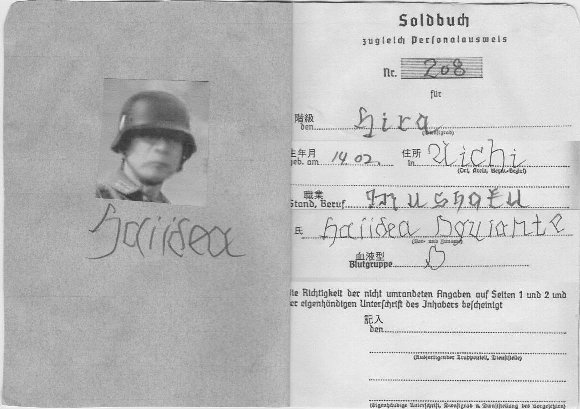 Soldbuch
zugleich Personalausweis
Nr. 208
für
階級
den Hira
(Dienstgrad)
生年月 住所
geb. am 14.02. in Uichi
(Ort, Kreis, Verw.-Bezirk)
職業
Stand, Beruf
氏
(Vor- und Zuname)
血液型
Blutgruppe B
die Richtigkeit der nicht umrandeten Angaben auf Seiten 1 und 2 und
der eigenhändigen Unterschrift des Inhabers bescheinigt
記入
den
(Ausfertigender Truppenteil, Dienststelle)
(Eigenhändige Unterschrift, Dienstgrad u. Dienststellung des Vorgesetzten)